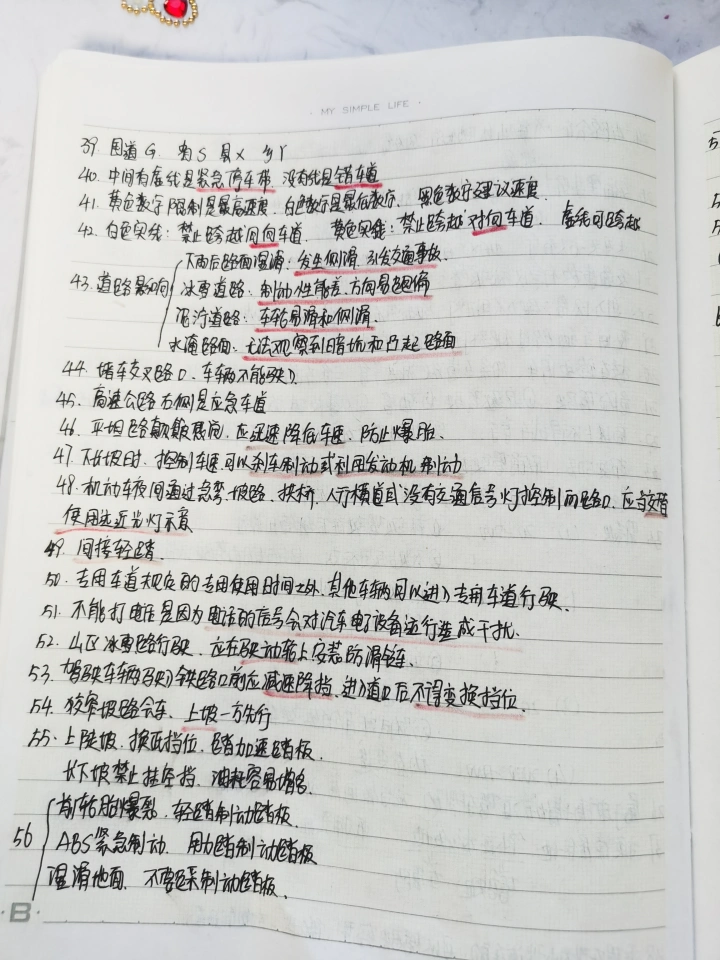 MY SIMPLE LIFE
39. 国道G. 省S 县X 乡Y
40. 中间有虚线是紧急停车带, 没有线是错车道
41. 黄色数字限制是最高速度. 白色数字是最低数字. 黑色数字建议速度.
42. 白色实线: 禁止跨越同向车道. 黄色实线: 禁止跨越对向车道. 虚线可跨越
下雨后路面湿滑: 发生侧滑. 引发交通事故.
43. 道路影响 冰雪道路: 制动性能差. 方向易跑偏
泥泞道路: 车轮易滑和侧滑.
水淹路面: 无法观察到暗坑和凸起路面
44. 堵车交叉路口. 车辆不能驶入
45. 高速公路右侧是应急车道
46. 平坦路 应迅速降低车速. 防止爆胎.
47. 下长坡时. 控制车速可以刹车制动或利用发动机制动
48. 机动车夜间通过急弯. 坡路. 拱桥. 人行横道或没有交通信号灯控制的路口. 应当交替
使用远近光灯示意
49. 间接轻踏.
50. 专用车道规定的专用使用时间之外. 其他车辆可以进入专用车道行驶.
51. 不能打电话是因为电话的信号会对汽车电子设备运行造成干扰.
52. 山区冰雪路行驶. 应在驶动轮上安装防滑链.
53. 驾驶车辆驶入铁路口前应减速降挡. 进入道口后不得变换挡位.
54. 狭窄坡路会车. 上坡一方先行
55. 上陡坡. 换低挡位. 踏加速踏板.
长下坡禁止挂空挡. 油耗容易增多.
前轮胎爆裂. 轻踏制动踏板.
56 ABS紧急制动. 用力踏制动踏板
湿滑地面. 不要踩制动踏板.
B